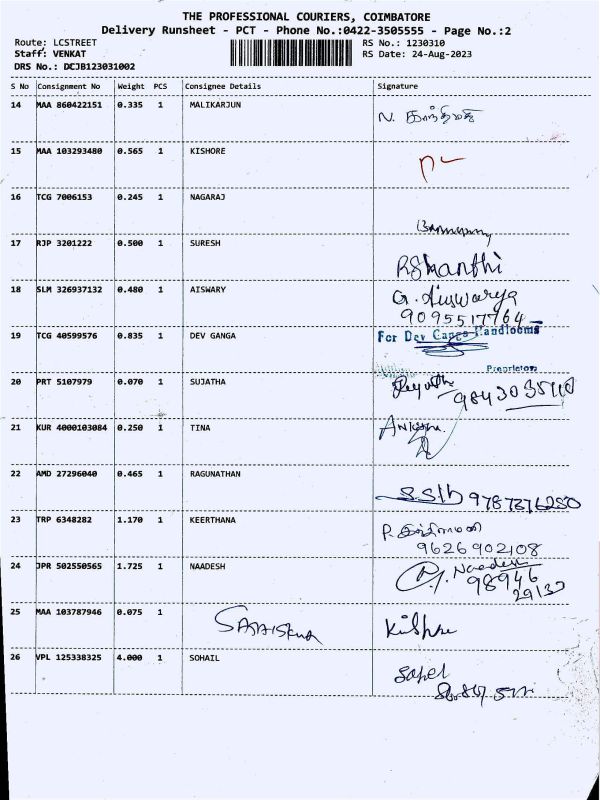 THE PROFESSIONAL COURIERS, COIMBATORE
Delivery Runsheet - PCT - Phone No.:0422-3505555 - Page No.:2
Route: LCSTREET
RS No.: 1230310
Staff: VENKAT
RS Date: 24-Aug-2023
DRS No.: DCJB123031002
S No Consignment No Weight PCS Consignee Details Signature
14 MAA 860422151 0.335 1 MALIKARJUN
N.
15 MAA 103293480 0.565 1 KISHORE
16 TCG 7006153 0.245 1 NAGARAJ
17 RJP 3201222 0.500 1 SURESH
RShanthi
18 SLM 326937132 0.480 1 AISWARY
G. Aiswarya
9095517764
19 TCG 40599576 0.835 1 DEV GANGA
For Dev Ganga Handlooms
Proprietor
20 PRT 5107979 0.070 1 SUJATHA
21 KUR 4000103084 0.250 1 TINA
22 AMD 27296040 0.465 1 RAGUNATHAN
23 TRP 6348282 1.170 1 KEERTHANA
P.
9626902108
24 JPR 502550565 1.725 1 NAADESH
Naadesh
98946
29132
25 MAA 103787946 0.075 1
Kishore
26 VPL 125338325 4.000 1 SOHAIL
Sohel